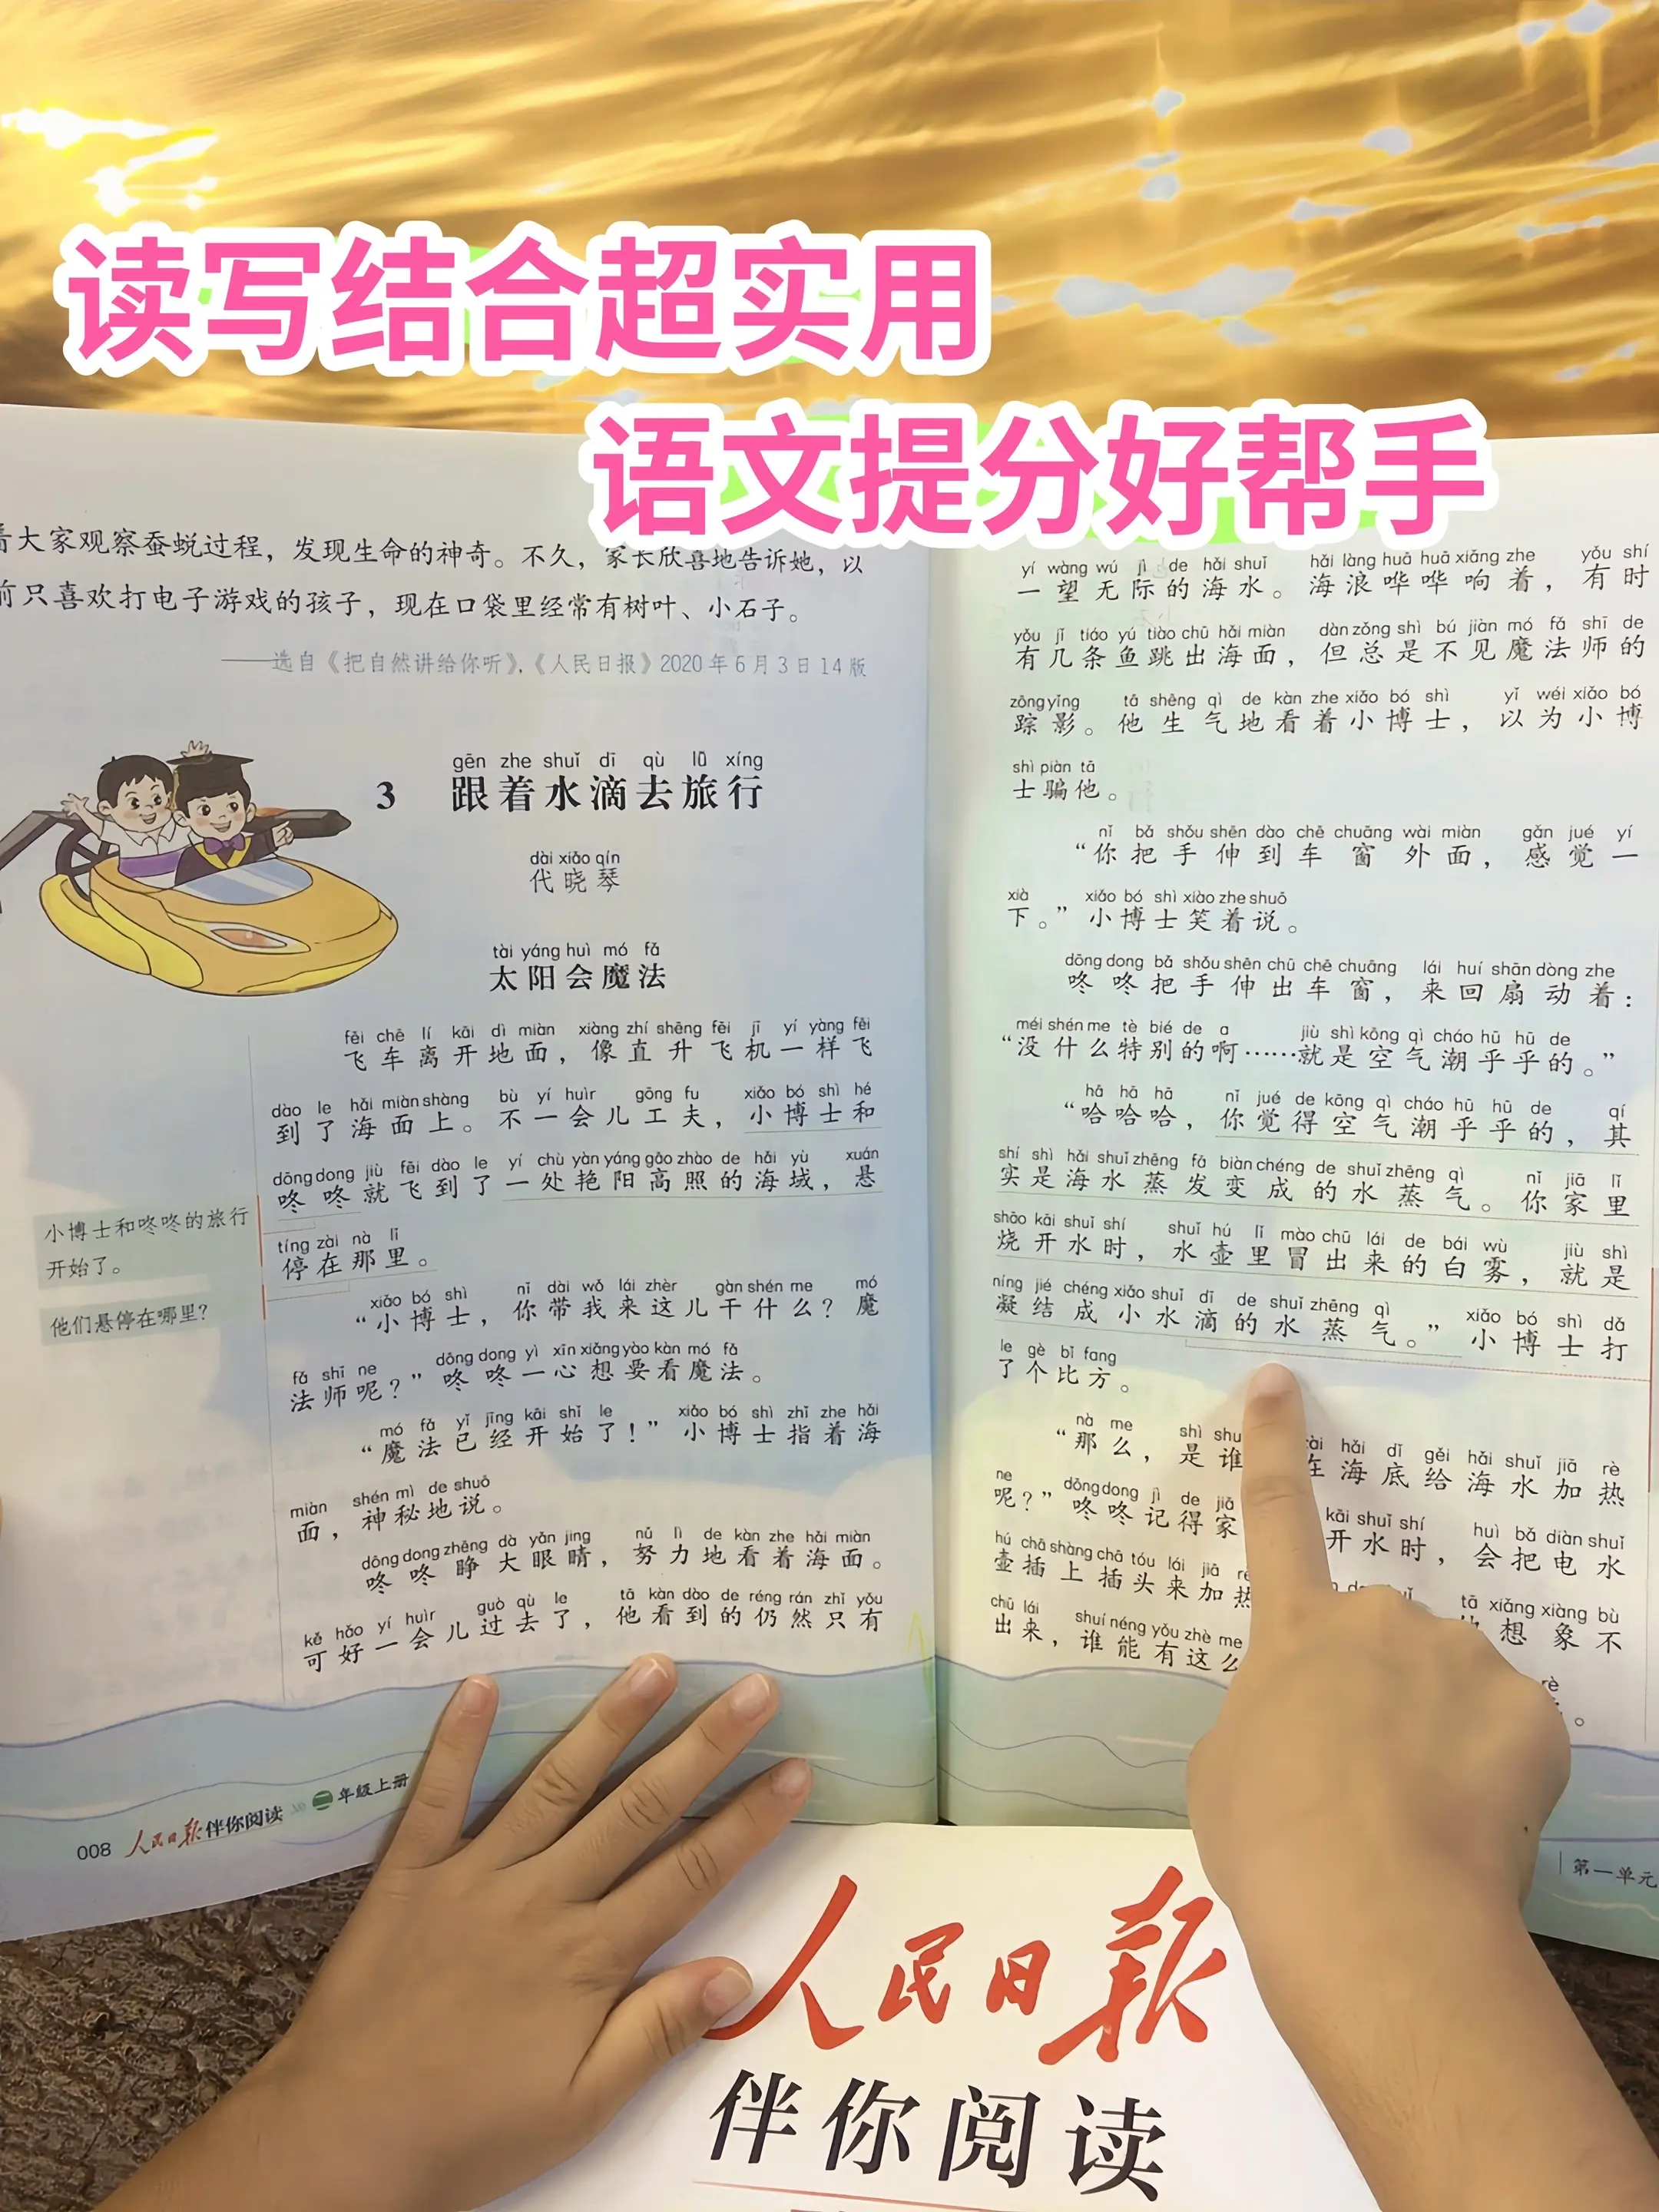 读写结合超实用
语文提分好帮手
着大家观察蚕蜕过程，发现生命的神奇。不久，家长欣喜地告诉她，以
前只喜欢打电子游戏的孩子，现在口袋里经常有树叶、小石子。
——选自《把自然讲给你听》，《人民日报》2020年6月3日14版
gēn zhe shuǐ dī qù lǚ xíng
3 跟着水滴去旅行
dài xiǎo qín
代晓琴
tài yáng huì mó fǎ
太阳会魔法
fēi chē lí kāi dì miàn xiàng zhí shēng fēi jī yí yàng fēi
飞车离开地面，像直升飞机一样飞
dào le hǎi miàn shàng bù yí huìr gōng fu xiǎo bó shì hé
到了海面上。不一会儿工夫，小博士和
dōng dong jiù fēi dào le yí chù yàn yáng gāo zhào de hǎi yù xuán
咚咚就飞到了一处艳阳高照的海域，悬
tíng zài nà lǐ
停在那里。
小博士和咚咚的旅行
开始了。
他们悬停在哪里？
xiǎo bó shì nǐ dài wǒ lái zhèr gàn shén me mó
“小博士，你带我来这儿干什么？魔
fǎ shī ne dōng dong yì xīn xiǎng yào kàn mó fǎ
法师呢？”咚咚一心想要看魔法。
mó fǎ yǐ jīng kāi shǐ le xiǎo bó shì zhǐ zhe hǎi
“魔法已经开始了！”小博士指着海
miàn shén mì de shuō
面，神秘地说。
dōng dong zhēng dà yǎn jing nǔ lì de kàn zhe hǎi miàn
咚咚睁大眼睛，努力地看着海面。
kě hǎo yí huìr guò qù le tā kàn dào de réng rán zhǐ yǒu
可好一会儿过去了，他看到的仍然只有
008 人民日报伴你阅读 二年级上册
yí wàng wú jì de hǎi shuǐ hǎi làng huā huā xiǎng zhe yǒu shí
一望无际的海水。海浪哗哗响着，有时
yǒu jǐ tiáo yú tiào chū hǎi miàn dàn zǒng shì bú jiàn mó fǎ shī de
有几条鱼跳出海面，但总是不见魔法师的
zōng yǐng tā shēng qì de kàn zhe xiǎo bó shì yǐ wéi xiǎo bó
踪影。他生气地看着小博士，以为小博
shì piàn tā
士骗他。
nǐ bǎ shǒu shēn dào chē chuāng wài miàn gǎn jué yí
“你把手伸到车窗外面，感觉一
xià xiǎo bó shì xiào zhe shuō
下。”小博士笑着说。
dōng dong bǎ shǒu shēn chū chē chuāng lái huí shān dòng zhe
咚咚把手伸出车窗，来回扇动着：
méi shén me tè bié de a jiù shì kōng qì cháo hū hū de
“没什么特别的啊……就是空气潮乎乎的。”
hā hā hā nǐ jué de kōng qì cháo hū hū de qí
“哈哈哈，你觉得空气潮乎乎的，其
shí shì hǎi shuǐ zhēng fā biàn chéng de shuǐ zhēng qì nǐ jiā lǐ
实是海水蒸发变成的水蒸气。你家里
shāo kāi shuǐ shí shuǐ hú lǐ mào chū lái de bái wù jiù shì
烧开水时，水壶里冒出来的白雾，就是
níng jié chéng xiǎo shuǐ dī de shuǐ zhēng qì xiǎo bó shì dǎ
凝结成小水滴的水蒸气。”小博士打
le gè bǐ fang
了个比方。
nà me shì shu zài hǎi dǐ gěi hǎi shuǐ jiā rè
“那么，是谁 在海底给海水加热
ne dōng dong jì de jiā kāi shuǐ shí huì bǎ diàn shuǐ
呢？”咚咚记得家 开水时，会把电水
hú chā shàng chā tóu lái jiā rè tā xiǎng xiàng bù
壶插上插头来加热 他想象不
chū lái shuí néng yǒu zhè me rè
出来，谁能有这么 。
第一单元
人民日报
伴你阅读